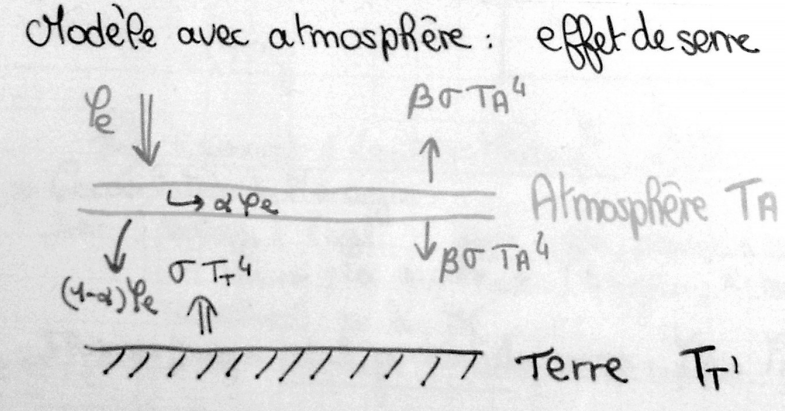 Modèle avec atmosphère : effet de serre
φe
βσTA⁴
↳ αφe
Atmosphère TA
(1-α)φe
σTT⁴
βσTA⁴
Terre TT'